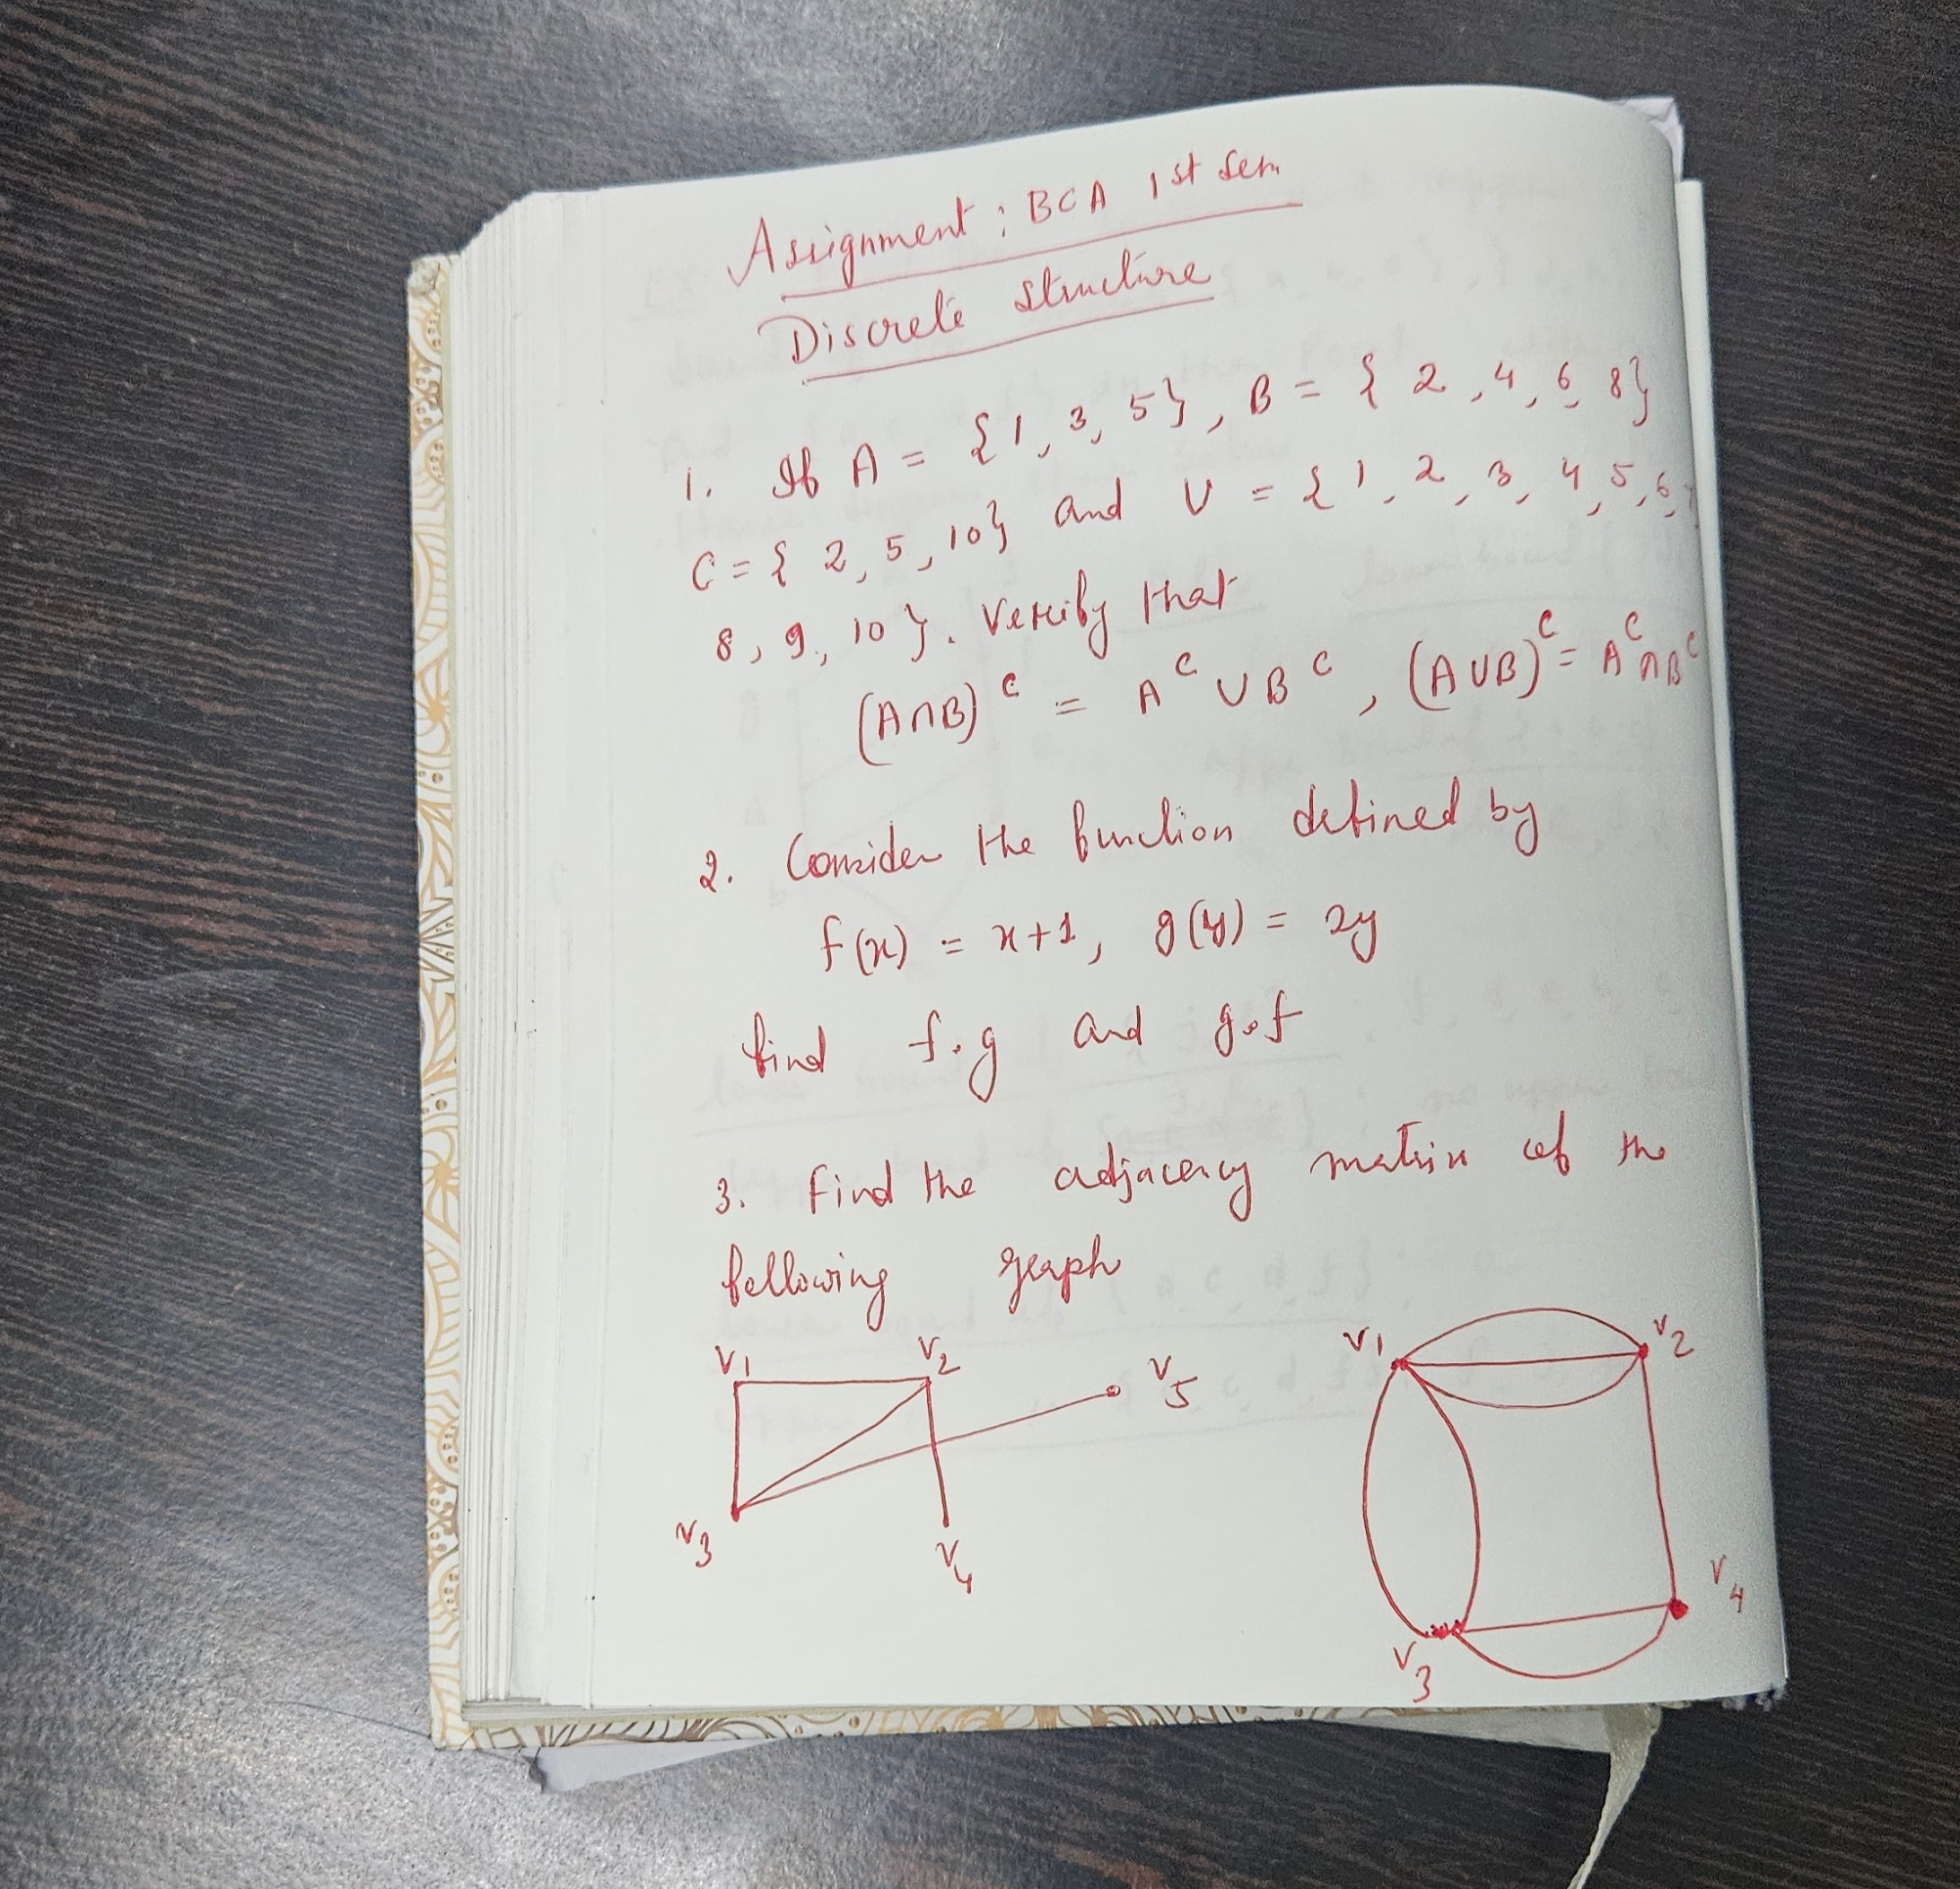 Assignment : BCA 1st Sem
Discrete structure
1. If A = {1, 3, 5}, B = { 2, 4, 6, 8}
C = { 2, 5, 10} and U = {1, 2, 3, 4, 5, 6,
8, 9, 10 }. Verify that
(A∩B)ᶜ = Aᶜ ∪ Bᶜ, (A∪B)ᶜ = Aᶜ∩Bᶜ
2. Consider the function defined by
f(x) = x+1, g(y) = 2y
find f.g and gof
3. Find the adjacency matrix of the
following graph
V1 V2 V5
V3 V4
V1 V2
V3 V4